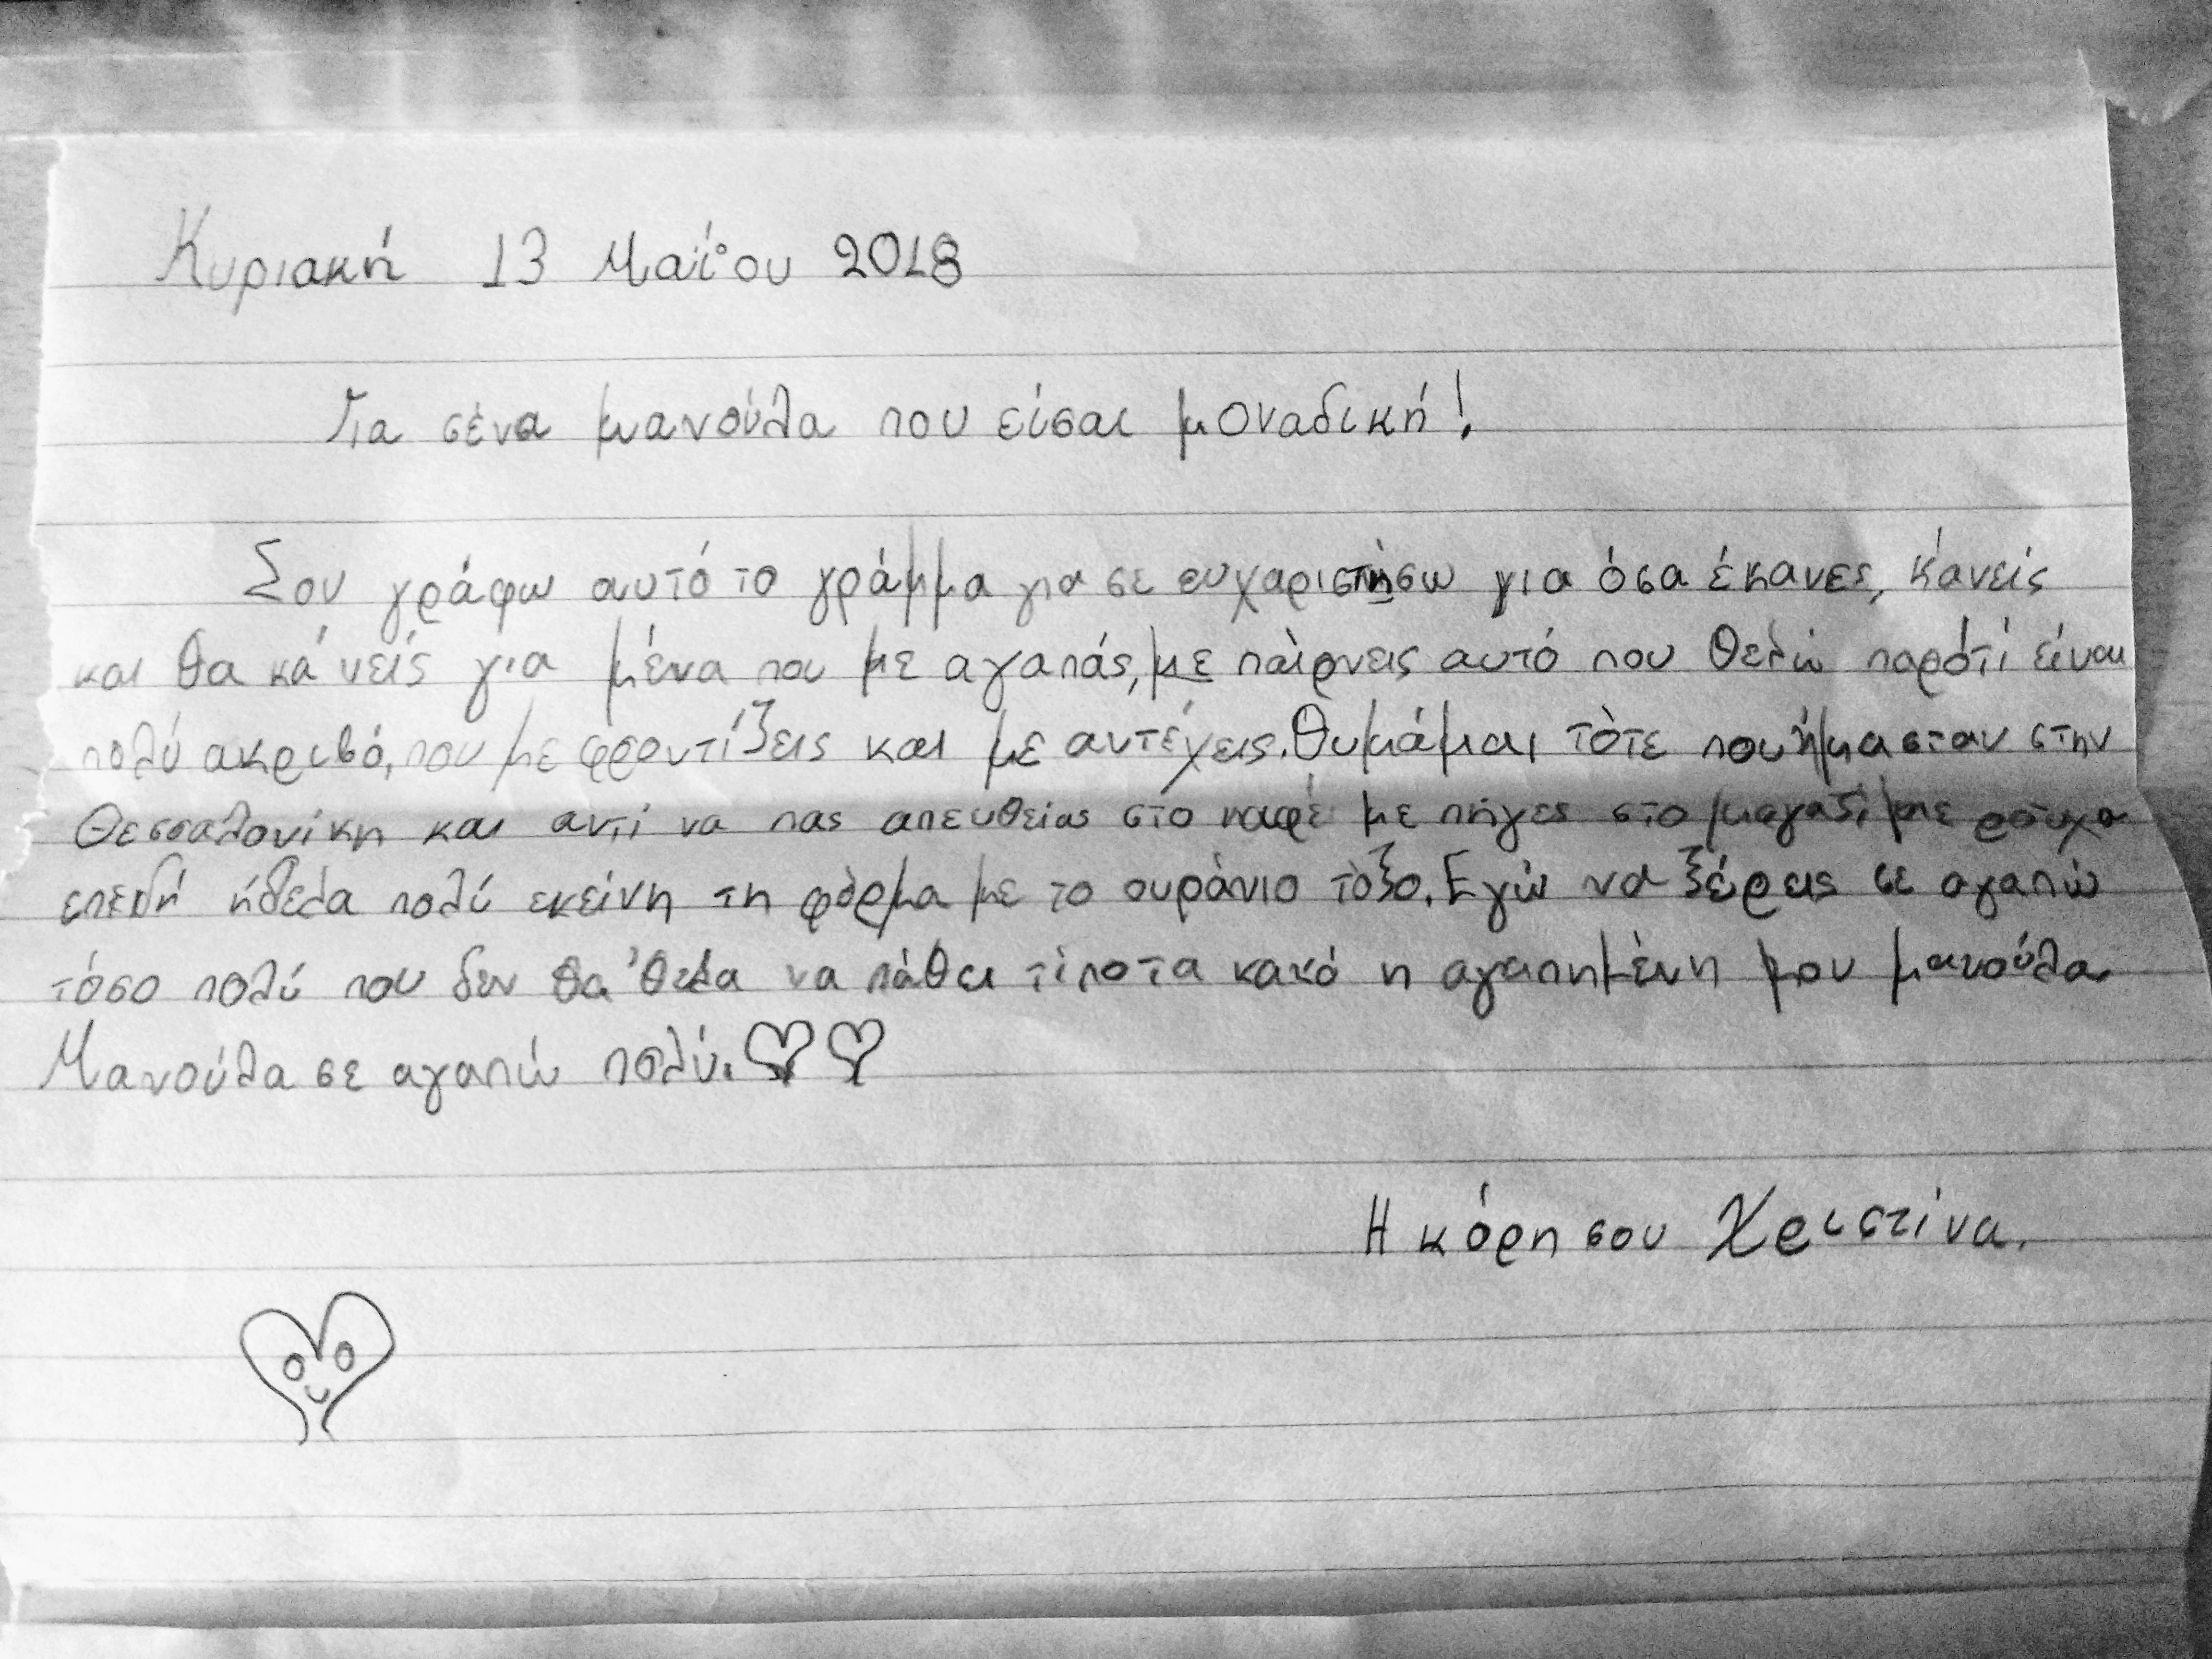 Κυριακή 13 Μαΐου 2018
Για σένα μανούλα που είσαι μοναδική!
Σου γράφω αυτό το γράμμα για σε ευχαριστήσω για όσα έκανες, κάνείς
και θα κάνείς για μένα που με αγαπάς, με παίρνεις αυτό που θελώ παρότί είναι
πολύ ακριβό, που με φροντίζεις και με αντέχεις. Θυμάμαι τότε που ήμασταν στην
Θεσσαλονίκη και αντί να πας απευθείας στο καφέ με πήγες στο μαγαζί με ρούχα
επειδή ήθελα πολύ εκείνη τη φόρμα με το ουράνιο τόξο. Εγώ να ξέρεις σε αγαπώ
τόσο πολύ που δεν θα 'θελα να πάθει τίποτα κακό η αγαπημένη μου μανούλα
Μανούλα σε αγαπώ πολύ. ♡♡
Η κόρη σου Χριστίνα.